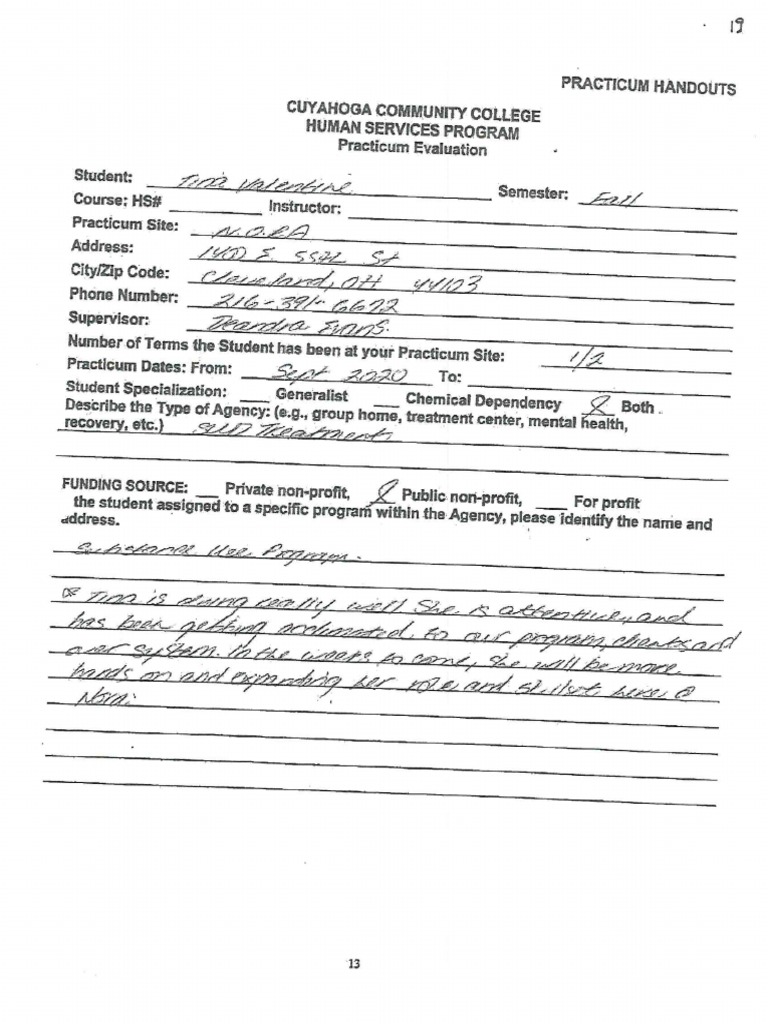 19
PRACTICUM HANDOUTS
CUYAHOGA COMMUNITY COLLEGE
HUMAN SERVICES PROGRAM
Practicum Evaluation
Student: Tina Valentine Semester: Fall
Course: HS# Instructor:
Practicum Site: N.O.R.A
Address: 1400 E. 55th St
City/Zip Code: Cleveland, OH 44103
Phone Number: 216-391-6672
Supervisor: Deandra Evans.
Number of Terms the Student has been at your Practicum Site: 1/2
Practicum Dates: From: Sept 2020 To:
Student Specialization: Generalist Chemical Dependency Both
Describe the Type of Agency: (e.g., group home, treatment center, mental health,
recovery, etc.) SUD Treatment
FUNDING SOURCE: Private non-profit, Public non-profit, For profit
the student assigned to a specific program within the Agency, please identify the name and
address.
Substance Use Program.
Tina is doing really well She is attentive, and
has been getting acclimated to our program, clients and
over system. In the weeks to come, she will be more
hands on and expanding her role and skillset here @
Nora.
13